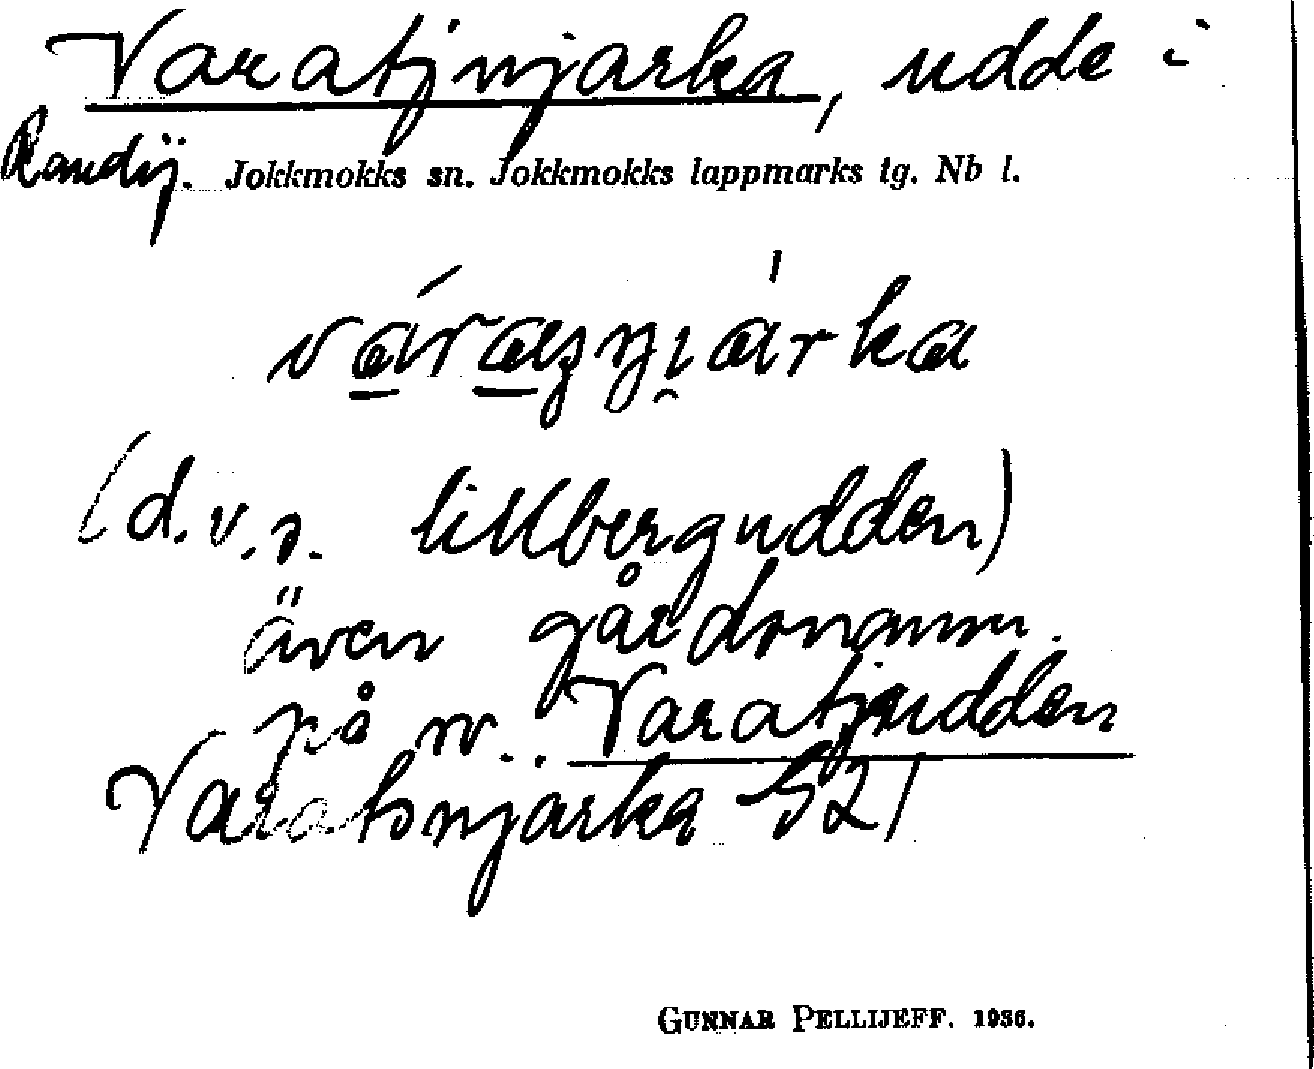 Varatjnjarka, udde i
Randij. Jokkmokks sn. Jokkmokks lappmarks tg. Nb l.
(d.v.s. lillbergudden)
även gårdsnamn.
på sv.. Varatjudden
Varatsnjarka S21
GUNNAR PELLIJEFF. 1936.